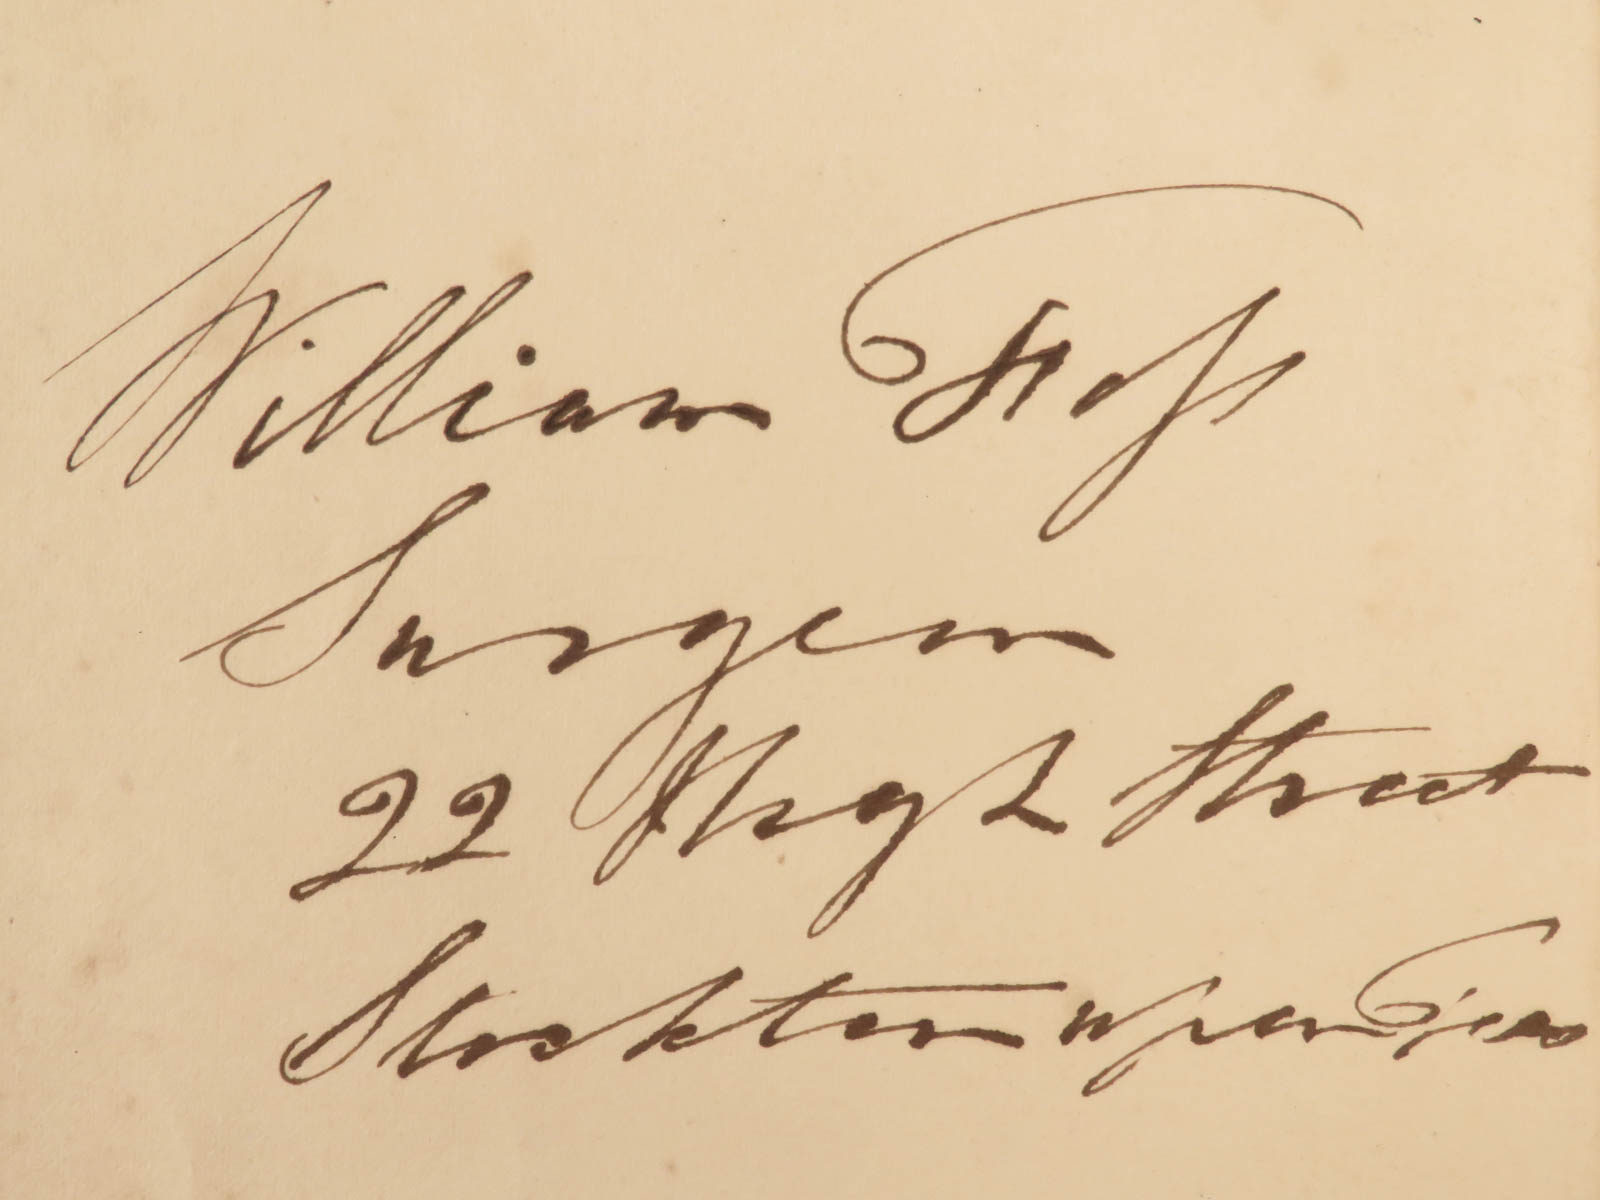 William Foss
Surgeon
22 High Street
Stockton upon Tees